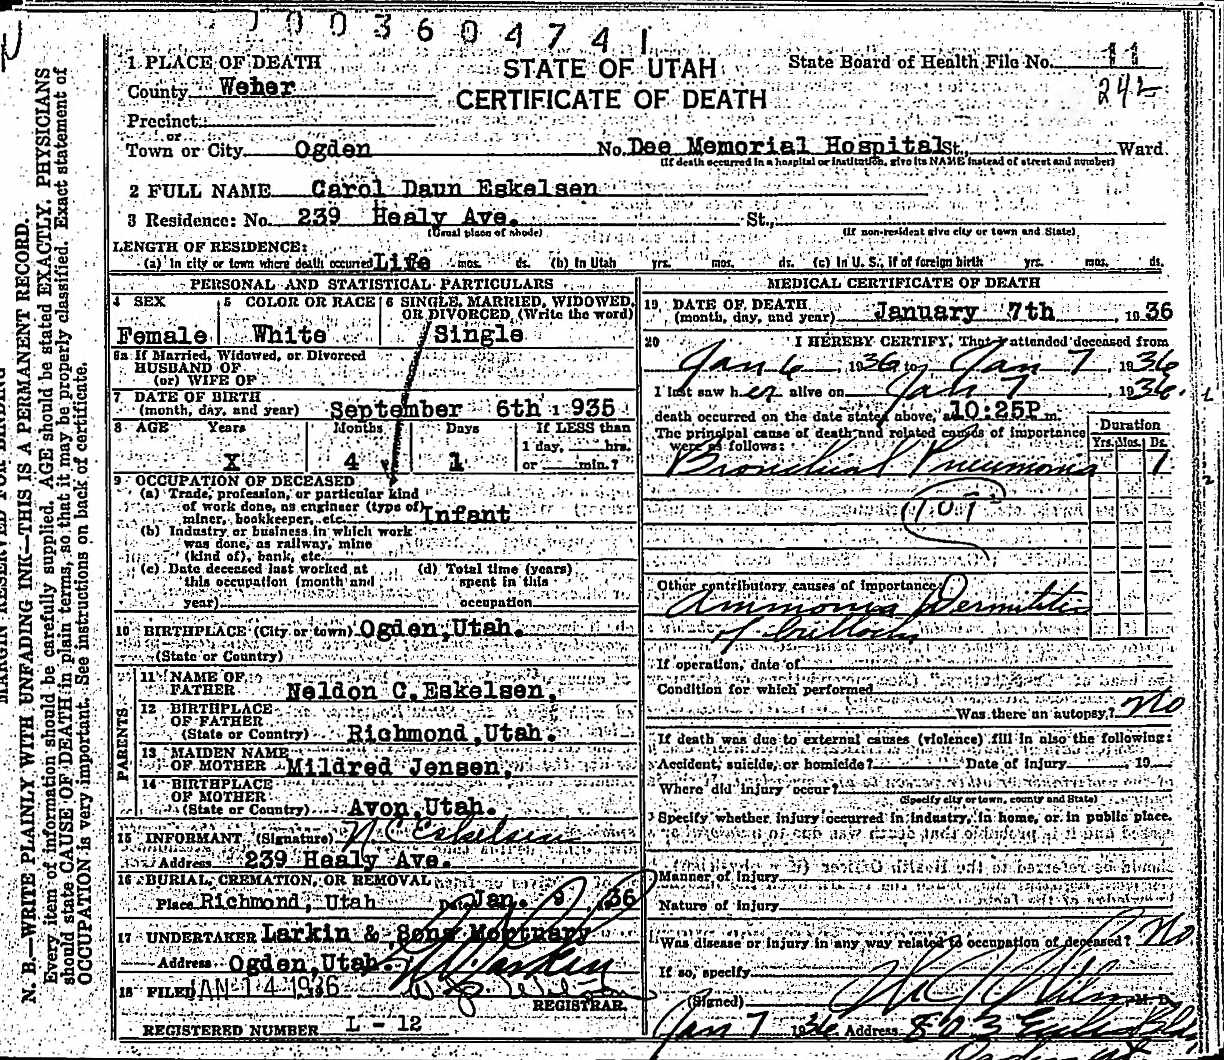 1003604741
1 PLACE OF DEATH
STATE OF UTAH
State Board of Health File No. 11
County Weber
242
CERTIFICATE OF DEATH
Precinct
or
Town or City Ogden No. Dee Memorial Hospital St., Ward
(If death occurred in a hospital or institution, give its NAME instead of street and number)
2 FULL NAME Carol Daun Eskelsen
3 Residence: No. 239 Healy Ave. St.,
(Usual place of abode) (If non-resident give city or town and State)
LENGTH OF RESIDENCE:
(a) In city or town where death occurred Life mos. ds. (b) In Utah yrs. mos. ds. (c) In U. S., if of foreign birth yrs. mos. ds.
PERSONAL AND STATISTICAL PARTICULARS
4 SEX
Female
5 COLOR OR RACE
White
6 SINGLE, MARRIED, WIDOWED,
OR DIVORCED (Write the word)
Single
6a If Married, Widowed, or Divorced
HUSBAND OF
(or) WIFE OF
7 DATE OF BIRTH
(month, day, and year) September 6th 1935
8 AGE Years Months Days If LESS than
1 day, hrs.
X 4 1 or min.?
9 OCCUPATION OF DECEASED
(a) Trade, profession, or particular kind
of work done, as engineer (type of)
miner, bookkeeper, etc. Infant
(b) Industry or business in which work
was done, as railway, mine
(kind of), bank, etc.
(c) Date deceased last worked at
this occupation (month and
year)
(d) Total time (years)
spent in this
occupation
10 BIRTHPLACE (City or town) Ogden, Utah.
(State or Country)
PARENTS
11 NAME OF
FATHER Neldon C. Eskelsen.
12 BIRTHPLACE
OF FATHER
(State or Country) Richmond, Utah.
13 MAIDEN NAME
OF MOTHER Mildred Jensen,
14 BIRTHPLACE
OF MOTHER
(State or Country) Avon, Utah.
15 INFORMANT (Signature) N C Eskelsen
Address 239 Healy Ave.
16 BURIAL, CREMATION, OR REMOVAL
Place Richmond, Utah Date Jan. 9, 1936
17 UNDERTAKER Larkin & Sons Mortuary
Address Ogden, Utah.
18 FILED JAN 14 1936
REGISTRAR.
REGISTERED NUMBER L - 12
MEDICAL CERTIFICATE OF DEATH
19 DATE OF DEATH
(month, day, and year) January 7th, 1936
20 I HEREBY CERTIFY, That I attended deceased from
Jan 6, 1936 to Jan 7, 1936
I last saw her alive on Jan 7, 1936.
death occurred on the date stated above, at 10:25P m.
The principal cause of death and related causes of importance
were as follows:
Duration
Yrs. Mos. Ds.
Bronchial Pneumonia 7
107
Other contributory causes of importance
Ammonia Dermititis
of buttocks
If operation, date of
Condition for which performed
Was there an autopsy? No
If death was due to external causes (violence) fill in also the following:
Accident, suicide, or homicide? Date of injury , 19
Where did injury occur?
(Specify city or town, county and State)
Specify whether injury occurred in industry, in home, or in public place.
Manner of injury
Nature of injury
Was disease or injury in any way related to occupation of deceased? No
If so, specify
(Signed) M. D.
Jan 7 1936 Address
MARGIN RESERVED FOR BINDING
N. B.—WRITE PLAINLY WITH UNFADING INK—THIS IS A PERMANENT RECORD.
Every item of information should be carefully supplied. AGE should be stated EXACTLY. PHYSICIANS
should state CAUSE OF DEATH in plain terms, so that it may be properly classified. Exact statement of
OCCUPATION is very important. See instructions on back of certificate.